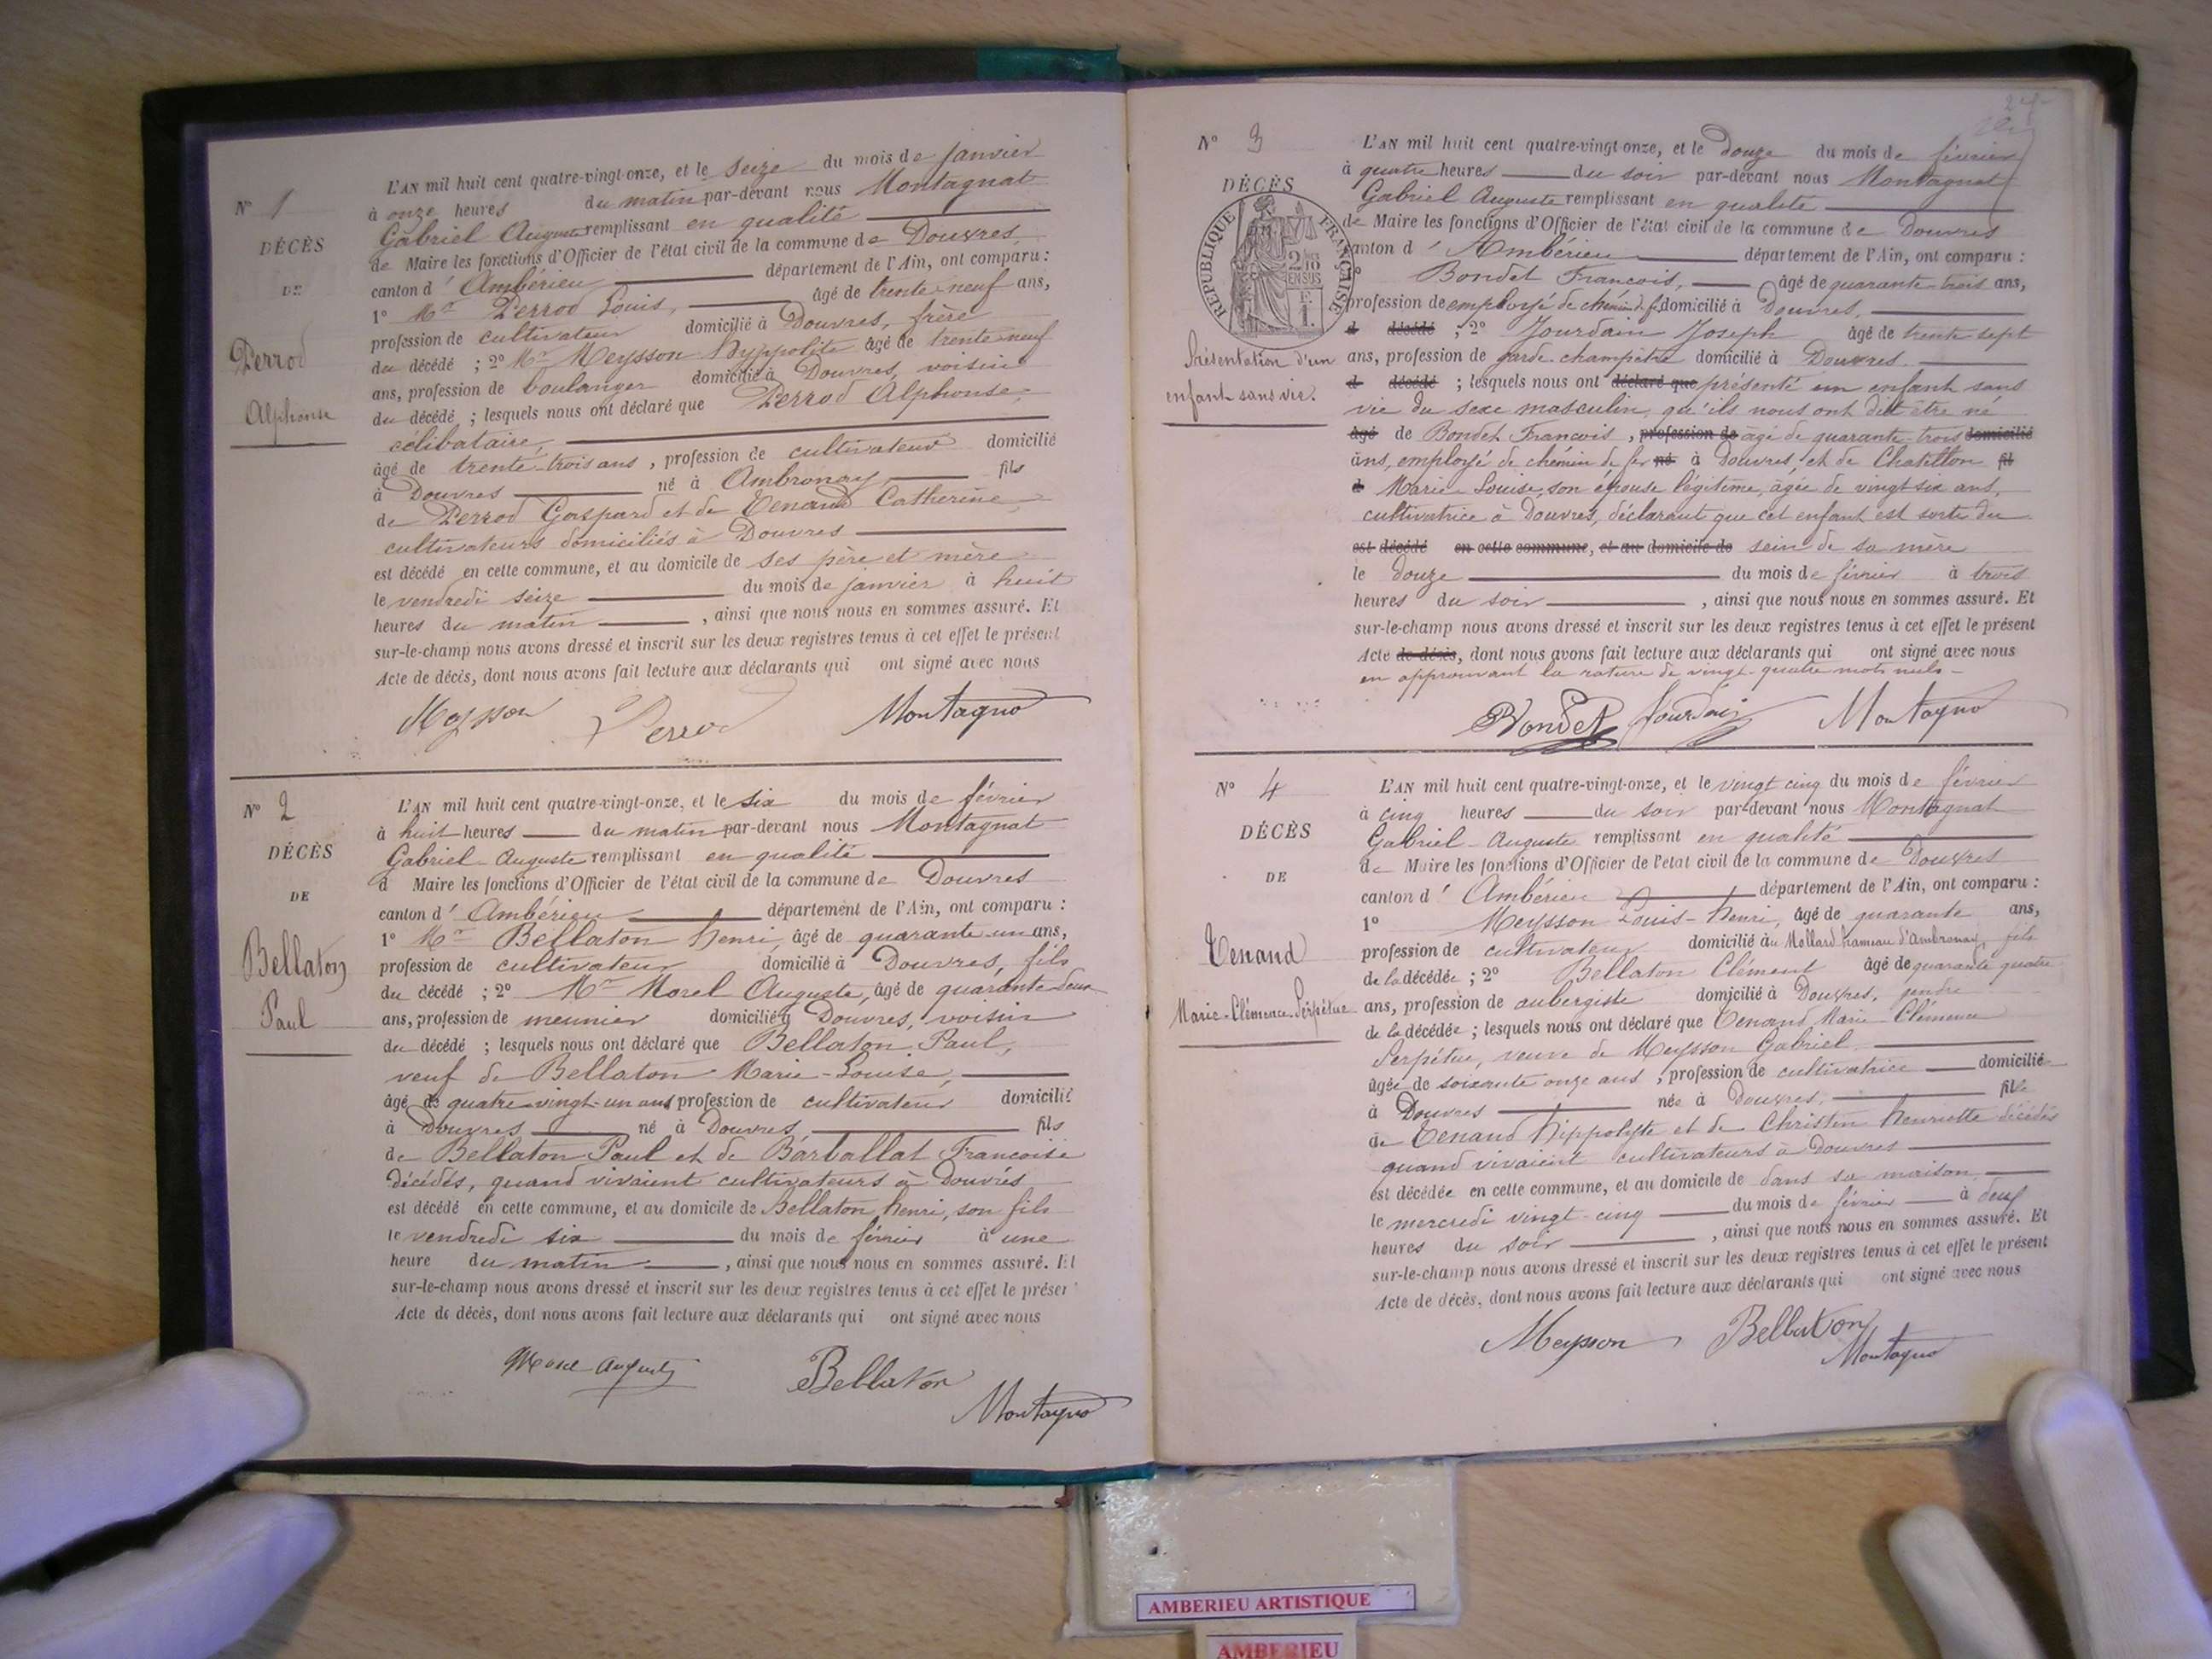 N° 1
DÉCÈS
DE
Perrod
Alphonse
L'AN mil huit cent quatre-vingt-onze, et le seize du mois de janvier
à onze heures du matin par-devant nous Montagnat
Gabriel Auguste remplissant en qualité
de Maire les fonctions d'Officier de l'état civil de la commune de Douvres
canton d'Ambérieu département de l'Ain, ont comparu :
1° Mr Perrod Louis, âgé de trente-neuf ans,
profession de cultivateur domicilié à Douvres, frère
du décédé ; 2° Mr Meysson Hyppolite âgé de trente-neuf
ans, profession de boulanger domicilié à Douvres, voisin
du décédé ; lesquels nous ont déclaré que Perrod Alphonse,
célibataire,
âgé de trente-trois ans, profession de cultivateur domicilié
à Douvres né à Ambronay, fils
de Perrod Gaspard et de Tenand Catherine,
cultivateurs domiciliés à Douvres
est décédé en cette commune, et au domicile de ses père et mère
le vendredi seize du mois de janvier à huit
heures du matin, ainsi que nous nous en sommes assuré. Et
sur-le-champ nous avons dressé et inscrit sur les deux registres tenus à cet effet le présent
Acte de décès, dont nous avons fait lecture aux déclarants qui ont signé avec nous
Meysson Perrod Montagna
N° 2
DÉCÈS
DE
Bellaton
Paul
L'AN mil huit cent quatre-vingt-onze, et le six du mois de février
à huit heures du matin par-devant nous Montagnat
Gabriel-Auguste remplissant en qualité
d Maire les fonctions d'Officier de l'état civil de la commune de Douvres
canton d'Ambérieu département de l'Ain, ont comparu :
1° Mr Bellaton Henri, âgé de quarante-un ans,
profession de cultivateur domicilié à Douvres, fils
du décédé ; 2° Mr Morel Auguste, âgé de quarante-deux
ans, profession de meunier domicilié à Douvres, voisin
du décédé ; lesquels nous ont déclaré que Bellaton Paul,
veuf de Bellaton Marie-Louise,
âgé de quatre-vingt-un ans profession de cultivateur domicilié
à Douvres né à Douvres, fils
de Bellaton Paul et de Barballat Francoise
décédés, quand vivaient cultivateurs à Douvres
est décédé en cette commune, et au domicile de Bellaton Henri, son fils
le vendredi six du mois de février à une
heure du matin, ainsi que nous nous en sommes assuré. Et
sur-le-champ nous avons dressé et inscrit sur les deux registres tenus à cet effet le présent
Acte de décès, dont nous avons fait lecture aux déclarants qui ont signé avec nous
Morel Auguste Bellaton
Montagna
N° 3
DÉCÈS
RÉPUBLIQUE FRANÇAISE
2/10 EN SUS
Présentation d'un
enfant sans vie.
L'AN mil huit cent quatre-vingt-onze, et le douze du mois de février
à quatre heures du soir par-devant nous Montagnat
Gabriel Auguste remplissant en qualité
de Maire les fonctions d'Officier de l'état civil de la commune de Douvres
canton d'Ambérieu département de l'Ain, ont comparu :
Bondet Francois, âgé de quarante-trois ans,
profession de employé de chemin de f. domicilié à Douvres,
d décédé ; 2° Jourdain Joseph âgé de trente sept
ans, profession de garde champêtre domicilié à Douvres
d décédé ; lesquels nous ont déclaré que présenté un enfant sans
vie du sexe masculin, qu'ils nous ont dit être né
âgé de Bondet Francois, profession de âgé de quarante-trois domicilié
ans, employé de chemin de fer né à Douvres, et de Chatillon fil
d Marie-Louise, son épouse légitime, âgée de vingt-six ans,
cultivatrice à Douvres, déclarant que cet enfant est sorti du
est décédé en cette commune, et au domicile de sein de sa mère
le douze du mois de février à trois
heures du soir, ainsi que nous nous en sommes assuré. Et
sur-le-champ nous avons dressé et inscrit sur les deux registres tenus à cet effet le présent
Acte de décès, dont nous avons fait lecture aux déclarants qui ont signé avec nous
en approuvant la rature de vingt-quatre mots nuls
Bondet Jourdain Montagna
N° 4
DÉCÈS
DE
Tenand
Marie-Clémence-Perpétue
L'AN mil huit cent quatre-vingt-onze, et le vingt cinq du mois de février
à cinq heures du soir par-devant nous Montagnat
Gabriel-Auguste remplissant en qualité
de Maire les fonctions d'Officier de l'état civil de la commune de Douvres
canton d'Ambérieu département de l'Ain, ont comparu :
1° Meysson Louis-Henri, âgé de quarante ans,
profession de cultivateur domicilié au Mollard hameau d'Ambronay, fils
de la décédée ; 2° Bellaton Clément âgé de quarante quatre
ans, profession de aubergiste domicilié à Douvres, gendre
de la décédée ; lesquels nous ont déclaré que Tenand Marie Clémence
Perpétue, veuve de Meysson Gabriel
âgée de soixante onze ans, profession de cultivatrice domicilié
à Douvres née à Douvres, fille
de Tenand Hippolyte et de Christin Henriette décédés
quand vivaient cultivateurs à Douvres
est décédée en cette commune, et au domicile de dans sa maison
le mercredi vingt-cinq du mois de février à deux
heures du soir, ainsi que nous nous en sommes assuré. Et
sur-le-champ nous avons dressé et inscrit sur les deux registres tenus à cet effet le présent
Acte de décès, dont nous avons fait lecture aux déclarants qui ont signé avec nous
Meysson Bellaton
Montagna
AMBERIEU ARTISTIQUE
AMBERIEU